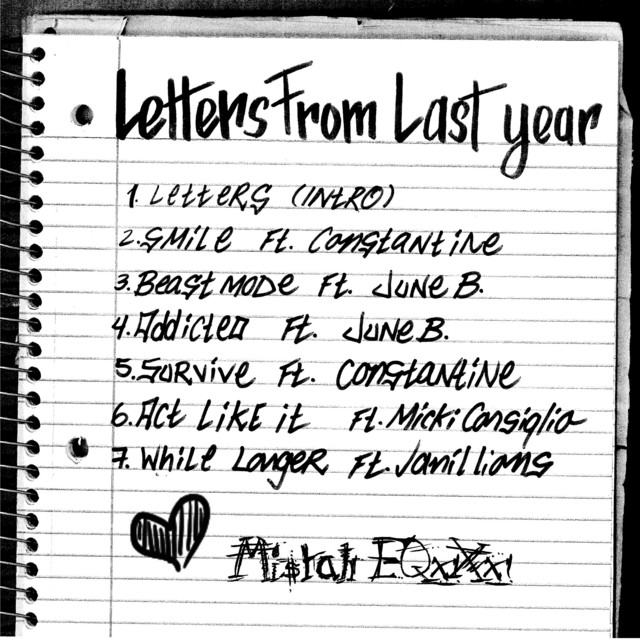 Letters From Last year
1. Letters (INTRO)
2. SMiLe Ft. Constantine
3. Beast MODe Ft. June B.
4. Addicted Ft. June B.
5. Survive Ft. Constantine
6. Act Like it Ft. Micki Consiglio
7. While Longer Ft. Janilliams